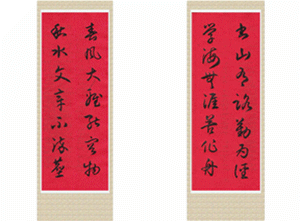 书山有路勤为径
学海無涯苦作舟
春风大雅能容物
秋水文章不染尘